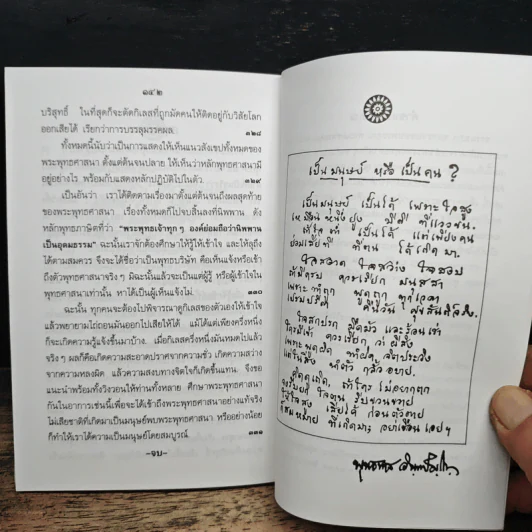 ๑๔๒
บริสุทธิ์ ในที่สุดก็จะตัดกิเลสที่ผูกมัดคนให้ติดอยู่กับวิสัยโลก
ออกเสียได้ เรียกว่าการบรรลุมรรคผล
๓๒๘
ทั้งหมดนี้นับว่าเป็นการแสดงให้เห็นแนวสังเขปทั้งหมดของ
พระพุทธศาสนา ตั้งแต่ต้นจนปลาย ให้เห็นว่าหลักพุทธศาสนามี
อยู่อย่างไร พร้อมกับแสดงหลักปฏิบัติไปในตัว
๓๒๙
เป็นอันว่า เราได้ติดตามเรื่องมาตั้งแต่ต้นจนถึงผลสุดท้าย
ของพระพุทธศาสนา เรื่องทั้งหมดก็ไปจบสิ้นลงที่นิพพาน ดัง
หลักพุทธภาษิตที่ว่า “พระพุทธเจ้าทุก ๆ องค์ย่อมถือว่านิพพาน
เป็นอุดมธรรม” ฉะนั้นเราจักต้องศึกษาให้รู้ให้เข้าใจ และให้ลุถึง
ได้ตามสมควร จึงจะได้ชื่อว่าเป็นพุทธบริษัท คือเห็นแจ้งหรือเข้า
ถึงตัวพุทธศาสนาจริงๆ มิฉะนั้นแล้วจะเป็นแต่ผู้รู้ หรือผู้เข้าใจใน
พุทธศาสนาเท่านั้น หาได้เป็นผู้เห็นแจ้งไม่
๓๓๐
ฉะนั้น ทุกคนจะต้องไปพิจารณาดูกิเลสของตัวเองให้เข้าใจ
แล้วพยายามไถ่ถอนมันออกไปเสียให้ได้ แม้ได้แต่เพียงครึ่งหนึ่ง
ก็จะเกิดความรู้แจ้งขึ้นมาบ้าง เมื่อกิเลสครึ่งหนึ่งมันหมดไปแล้ว
จริงๆ ผลก็คือเกิดความสะอาดปราศจากความชั่ว เกิดความสว่าง
จากความหลงผิด แล้วความสงบทางจิตใจก็เกิดขึ้นแทน จึงขอ
แนะนำพร้อมทั้งวิงวอนให้ท่านทั้งหลาย ศึกษาพระพุทธศาสนา
กันในอาการเช่นนี้เพื่อจะได้เข้าถึงพระพุทธศาสนาอย่างแท้จริง
ไม่เสียชาติที่เกิดมาเป็นมนุษย์พบพระพุทธศาสนา หรืออย่างน้อย
ก็ทำให้เราได้ความเป็นมนุษย์โดยสมบูรณ์
๓๓๑
-จบ-
เป็นมนุษย์ หรือ เป็นคน ?
เป็นมนุษย์ เป็นได้ เพราะใจสูง
เหมือนหนึ่งยูง มีดี ที่แววขน
ถ้าใจต่ำ เป็นได้ แต่เพียงคน
ย่อมเสียที ที่ตน ได้เกิดมา
ใจสะอาด ใจสว่าง ใจสงบ
ถ้ามีครบ ควรเรียก มนุสสา
เพราะทำถูก พูดถูก ทุกเวลา
เปรมปรีดา คืนวัน สุขสันต์จริง
ใจสกปรก มืดมัว และร้อนเร่า
ใครมีเข้า ควรเรียก ว่าผีสิง
เพราะพูดผิด ทำผิด จิตประวิง
แต่ในสิ่ง ทำตัว กลั้วอบาย
คิดดูเถิด ถ้าใคร ไม่อยากตก
จงรีบยก ใจตน รีบขวนขวาย
ให้ใจสูง เสียได้ ก่อนตัวตาย
ก็สมหมาย ที่เกิดมา อย่าเชือนเอยฯ
พุทธทาส อินฺทปญฺโญ